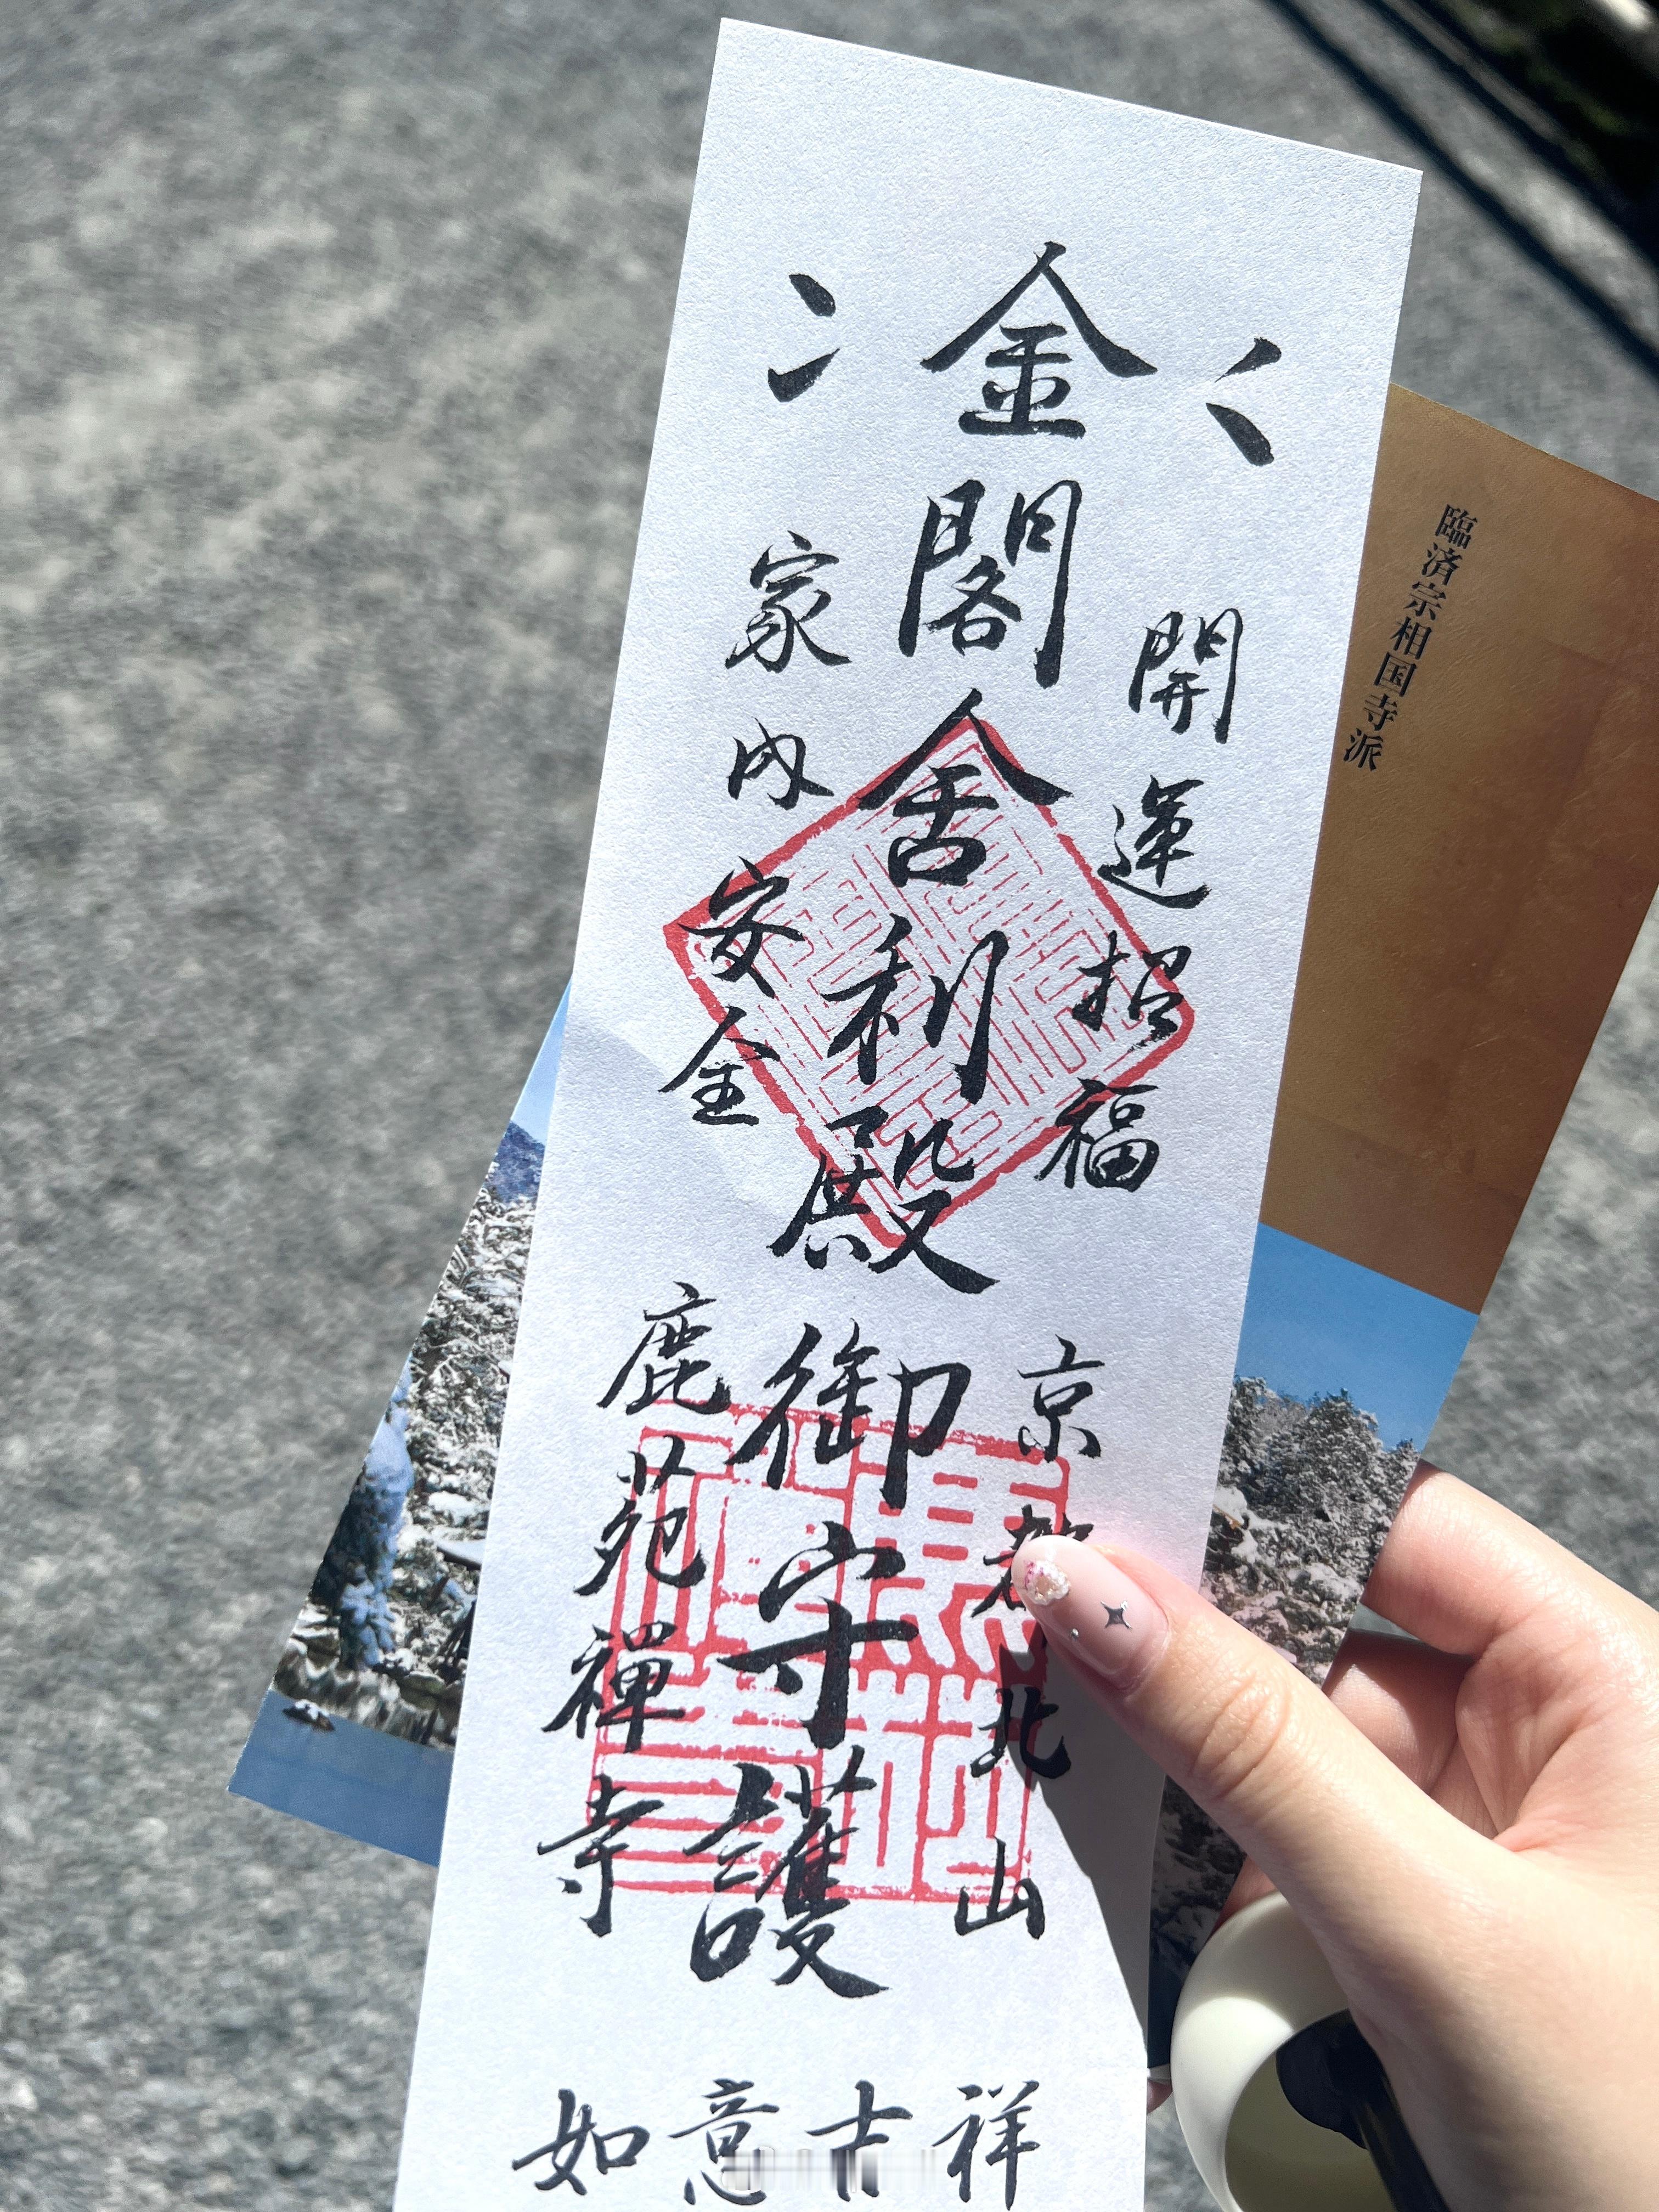 開運招福
金閣舎利殿御守護
家内安全
京都北山
鹿苑禅寺
如意吉祥
臨済宗相国寺派